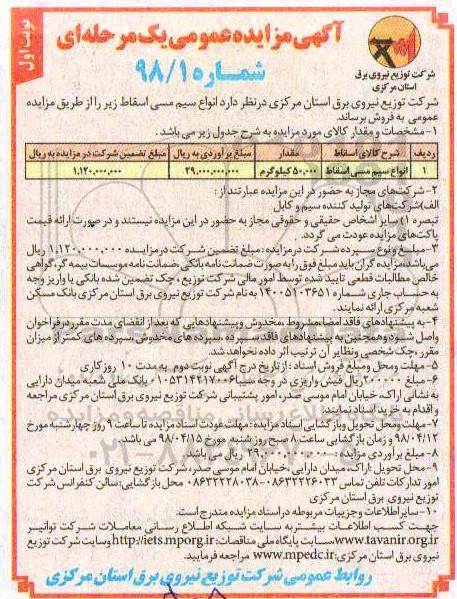 نوبت اول
آگهی مزایده عمومی یک مرحله‌ای
شماره ۹۸/۱
شرکت توزیع نیروی برق
استان مرکزی
شرکت توزیع نیروی برق استان مرکزی درنظر دارد انواع سیم مسی اسقاط زیر را از طریق مزایده
عمومی به فروش برساند.
۱-مشخصات و مقدار کالای مورد مزایده به شرح جدول زیر می باشد.
ردیف شرح کالای اسقاط مقدار مبلغ برآوردی به ریال مبلغ تضمین شرکت در مزایده به ریال
۱ انواع سیم مسی اسقاط ۵۰,۰۰۰ کیلوگرم ۲۹,۰۰۰,۰۰۰,۰۰۰ ۱,۱۲۰,۰۰۰,۰۰۰
۲-شرکت‌های مجاز به حضور در این مزایده عبارتند از:
الف)شرکت‌های تولید کننده سیم و کابل
تبصره ۱) سایر اشخاص حقیقی و حقوقی مجاز به حضور در این مزایده نیستند و در صورت ارائه قیمت
پاکت‌های مزایده عودت می گردد.
۳-مبلغ و نوع سپرده شرکت در مزایده: مبلغ تضمین شرکت در مزایده ۱,۱۲۰,۰۰۰,۰۰۰ ریال
می‌باشد، مزایده گران باید مبلغ فوق را به صورت ضمانت نامه بانکی، ضمانت نامه موسسات بیمه گر، گواهی
خالص مطالبات قطعی تایید شده توسط امور مالی شرکت توزیع، چک تضمین شده بانکی یا واریز وجه
به حساب جاری شماره ۱۴۰۰۵۱۰۳۶۵۱ به نام شرکت توزیع نیروی برق استان مرکزی بانک مسکن
شعبه مرکزی ارائه نمایند.
۴-به پیشنهادهای فاقد امضا، مشروط، مخدوش و پیشنهادهایی که بعد از انقضای مدت مقرر در فراخوان
واصل شود و همچنین به پیشنهادهای فاقد سپرده، سپرده های مخدوش، سپرده های کمتر از میزان
مقرر، چک شخصی و نظایر آن ترتیب اثر داده نخواهد شد.
۵-مهلت ومحل ومبلغ فروش اسناد: از تاریخ درج آگهی نوبت دوم به مدت ۱۰ روز کاری
۶-مبلغ ۲۰۰۰۰۰ ریال فیش واریزی در وجه سیبا ۰۱۰۵۳۱۴۴۲۱۷۰۰۶ بانک ملی شعبه میدان دارایی
به نشانی اراک، خیابان امام موسی صدر، امور پشتیبانی شرکت توزیع نیروی برق استان مرکزی مراجعه
و اقدام به خرید اسناد نمایند.
۷-مهلت ومحل تحویل وبازگشایی اسناد مزایده: مهلت عودت اسناد مزایده تا ساعت ۹ روز چهارشنبه مورخ
۹۸/۰۴/۱۲ و زمان بازگشایی ساعت ۸ صبح روز شنبه مورخ ۹۸/۰۴/۱۵ می باشد.
۸-مبلغ برآوردی مزایده ۲۹,۰۰۰,۰۰۰,۰۰۰ ریال می باشد.
۹-محل تحویل: اراک، میدان دارایی، خیابان امام موسی صدر، شرکت توزیع نیروی برق استان مرکزی
امور تدارکات تلفن تماس ۰۸۶۳۲۲۲۶۰۳۳-۰۸۶۳۲۲۲۸۰۳۸ محل بازگشایی: سالن کنفرانس شرکت
توزیع نیروی برق استان مرکزی
۱۰-سایر اطلاعات و جزییات مربوطه در اسناد مزایده مندرج است.
جهت کسب اطلاعات بیشتر به سایت شبکه اطلاع رسانی معاملات شرکت توانیر
www.tavanir.org.ir سایت پایگاه ملی مناقصات: http://iets.mporg.ir وسایت شرکت توزیع
نیروی برق استان مرکزی: www.mpedc.ir مراجعه فرمایید.
روابط عمومی شرکت توزیع نیروی برق استان مرکزی